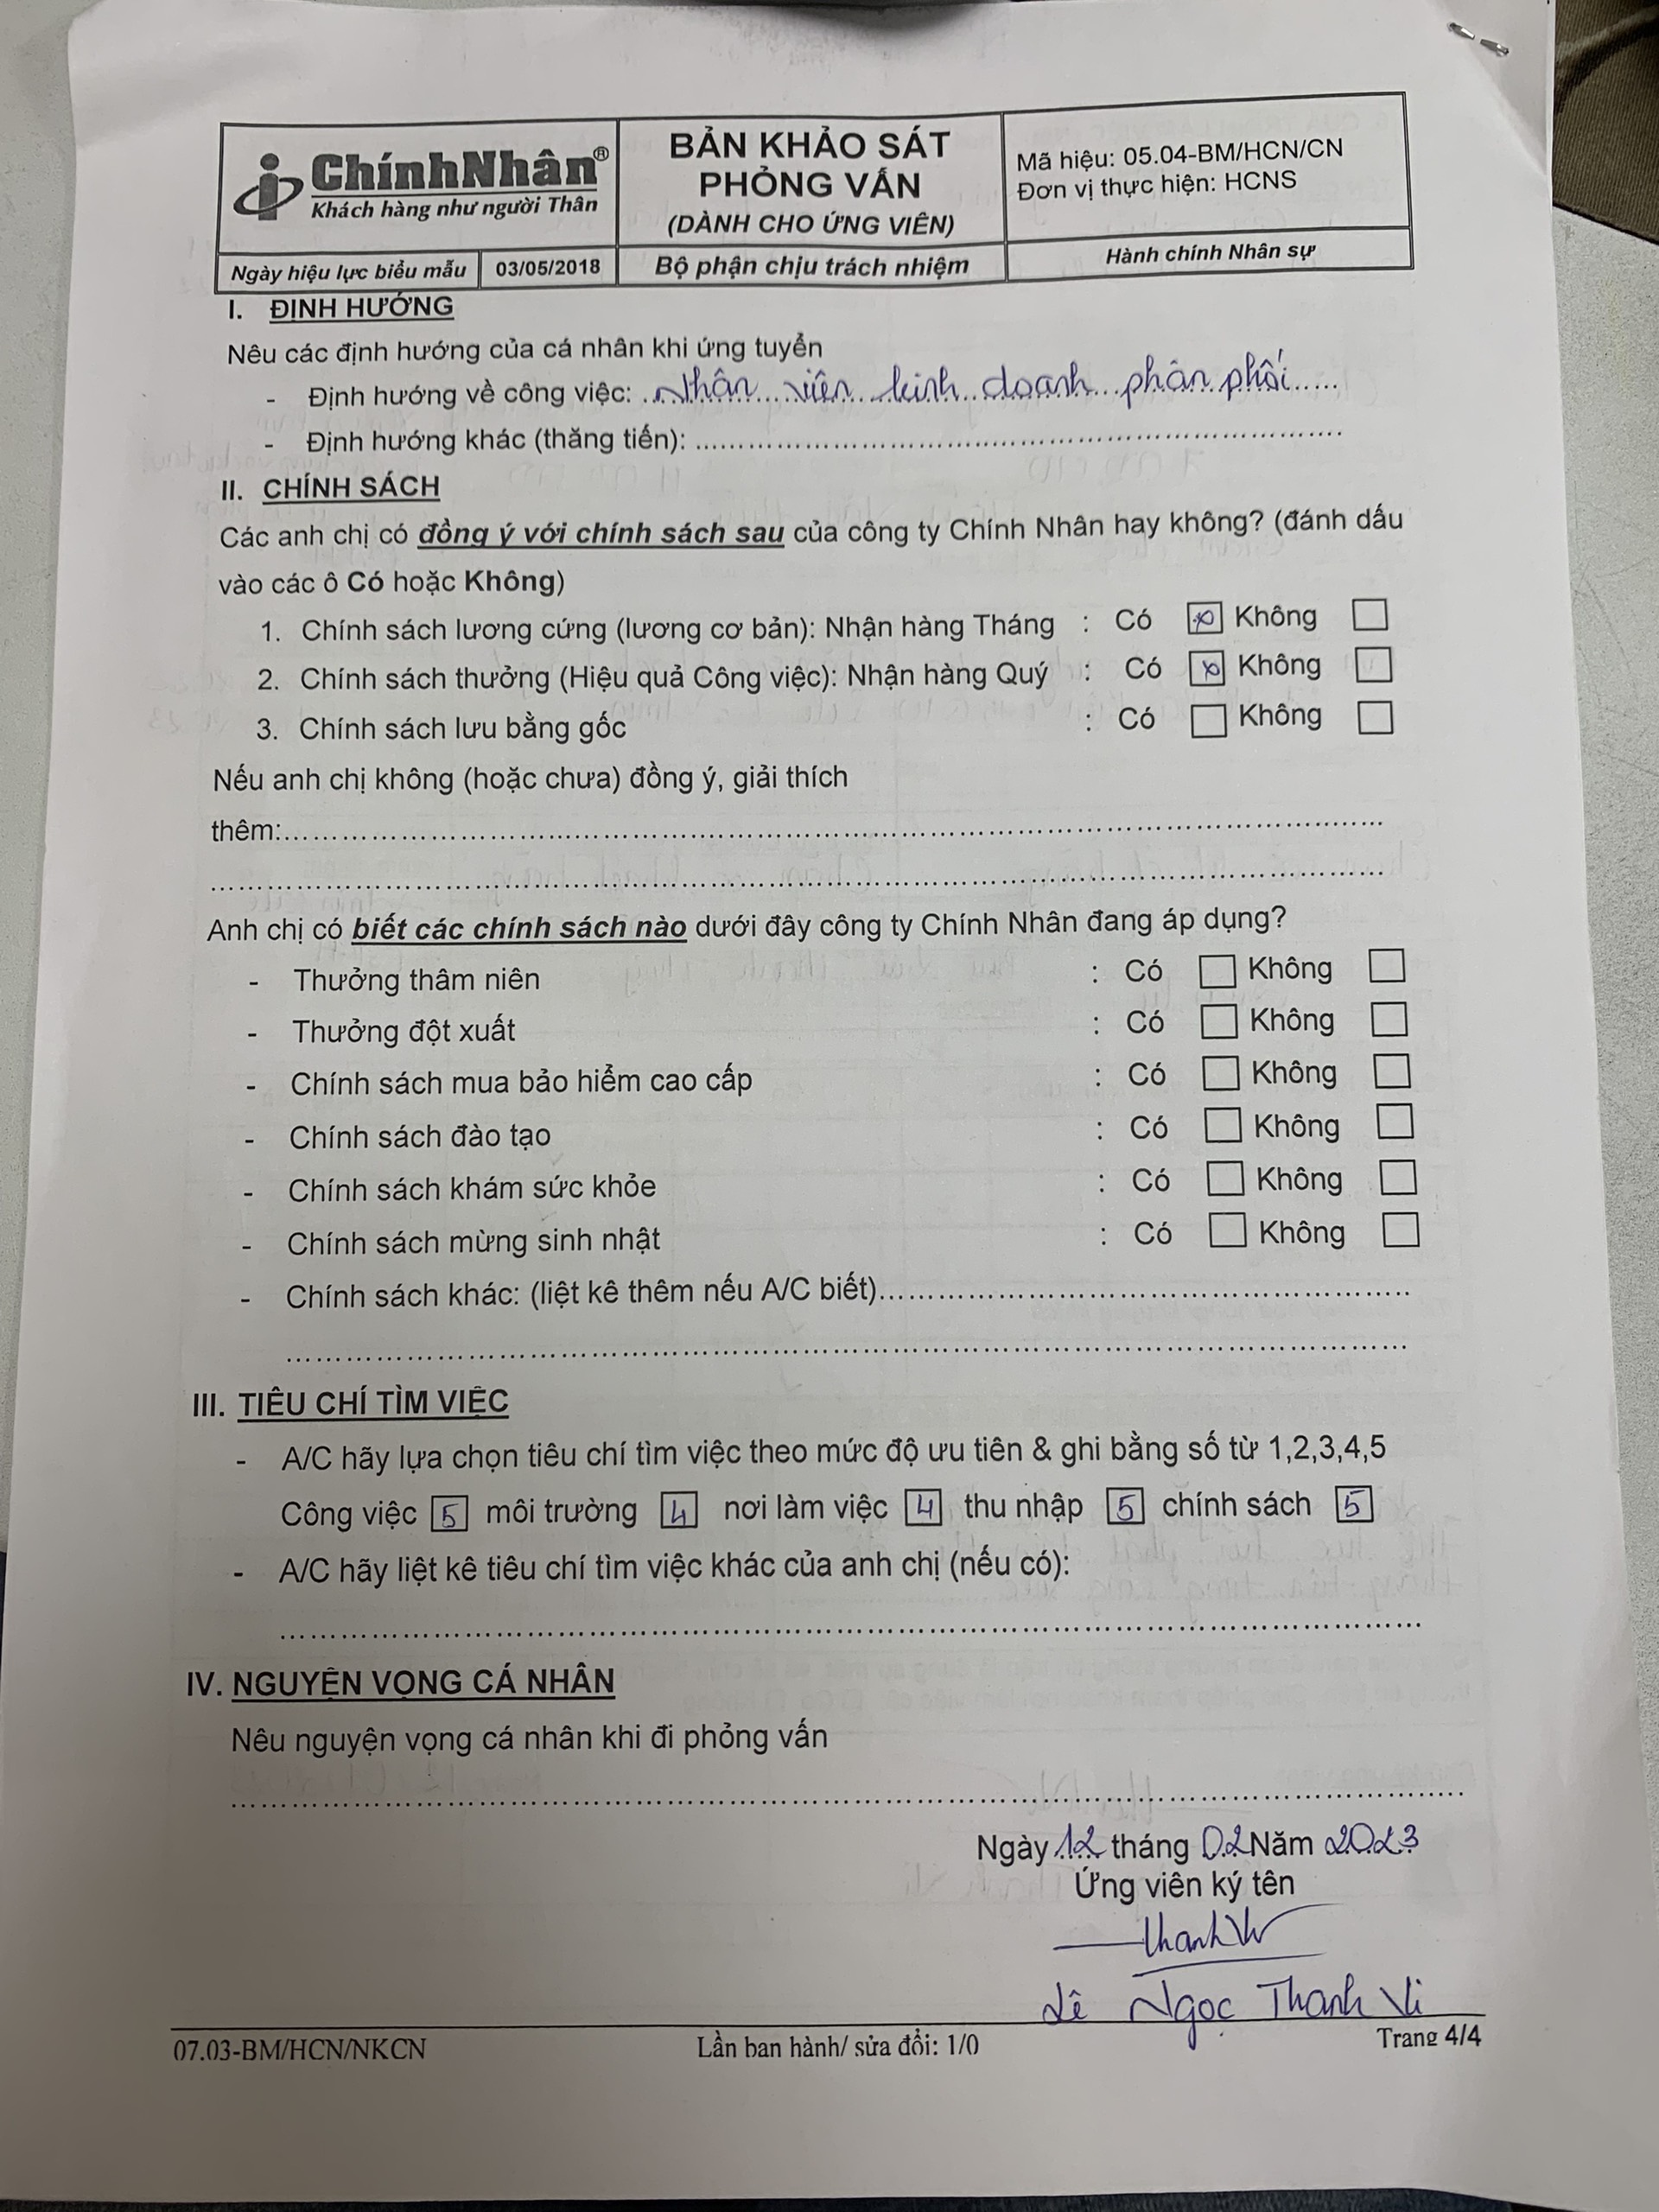 ChínhNhân®
Khách hàng như người Thân
BẢN KHẢO SÁT
PHỎNG VẤN
(DÀNH CHO ỨNG VIÊN)
Mã hiệu: 05.04-BM/HCN/CN
Đơn vị thực hiện: HCNS
Ngày hiệu lực biểu mẫu 03/05/2018 Bộ phận chịu trách nhiệm Hành chính Nhân sự
I. ĐỊNH HƯỚNG
Nêu các định hướng của cá nhân khi ứng tuyển
- Định hướng về công việc: Nhân viên kinh doanh phân phối
- Định hướng khác (thăng tiến): ........................................
II. CHÍNH SÁCH
Các anh chị có đồng ý với chính sách sau của công ty Chính Nhân hay không? (đánh dấu
vào các ô Có hoặc Không)
1. Chính sách lương cứng (lương cơ bản): Nhận hàng Tháng : Có ☒ Không ☐
2. Chính sách thưởng (Hiệu quả Công việc): Nhận hàng Quý : Có ☒ Không ☐
3. Chính sách lưu bằng gốc : Có ☐ Không ☐
Nếu anh chị không (hoặc chưa) đồng ý, giải thích
thêm:........................................
Anh chị có biết các chính sách nào dưới đây công ty Chính Nhân đang áp dụng?
- Thưởng thâm niên : Có ☐ Không ☐
- Thưởng đột xuất : Có ☐ Không ☐
- Chính sách mua bảo hiểm cao cấp : Có ☐ Không ☐
- Chính sách đào tạo : Có ☐ Không ☐
- Chính sách khám sức khỏe : Có ☐ Không ☐
- Chính sách mừng sinh nhật : Có ☐ Không ☐
- Chính sách khác: (liệt kê thêm nếu A/C biết)........................................
III. TIÊU CHÍ TÌM VIỆC
- A/C hãy lựa chọn tiêu chí tìm việc theo mức độ ưu tiên & ghi bằng số từ 1,2,3,4,5
Công việc 5 môi trường 4 nơi làm việc 4 thu nhập 5 chính sách 5
- A/C hãy liệt kê tiêu chí tìm việc khác của anh chị (nếu có):
IV. NGUYỆN VỌNG CÁ NHÂN
Nêu nguyện vọng cá nhân khi đi phỏng vấn
Ngày 12 tháng 02 Năm 2023
Ứng viên ký tên
ThanhVi
Lê Ngọc Thanh Vi
07.03-BM/HCN/NKCN Lần ban hành/ sửa đổi: 1/0 Trang 4/4